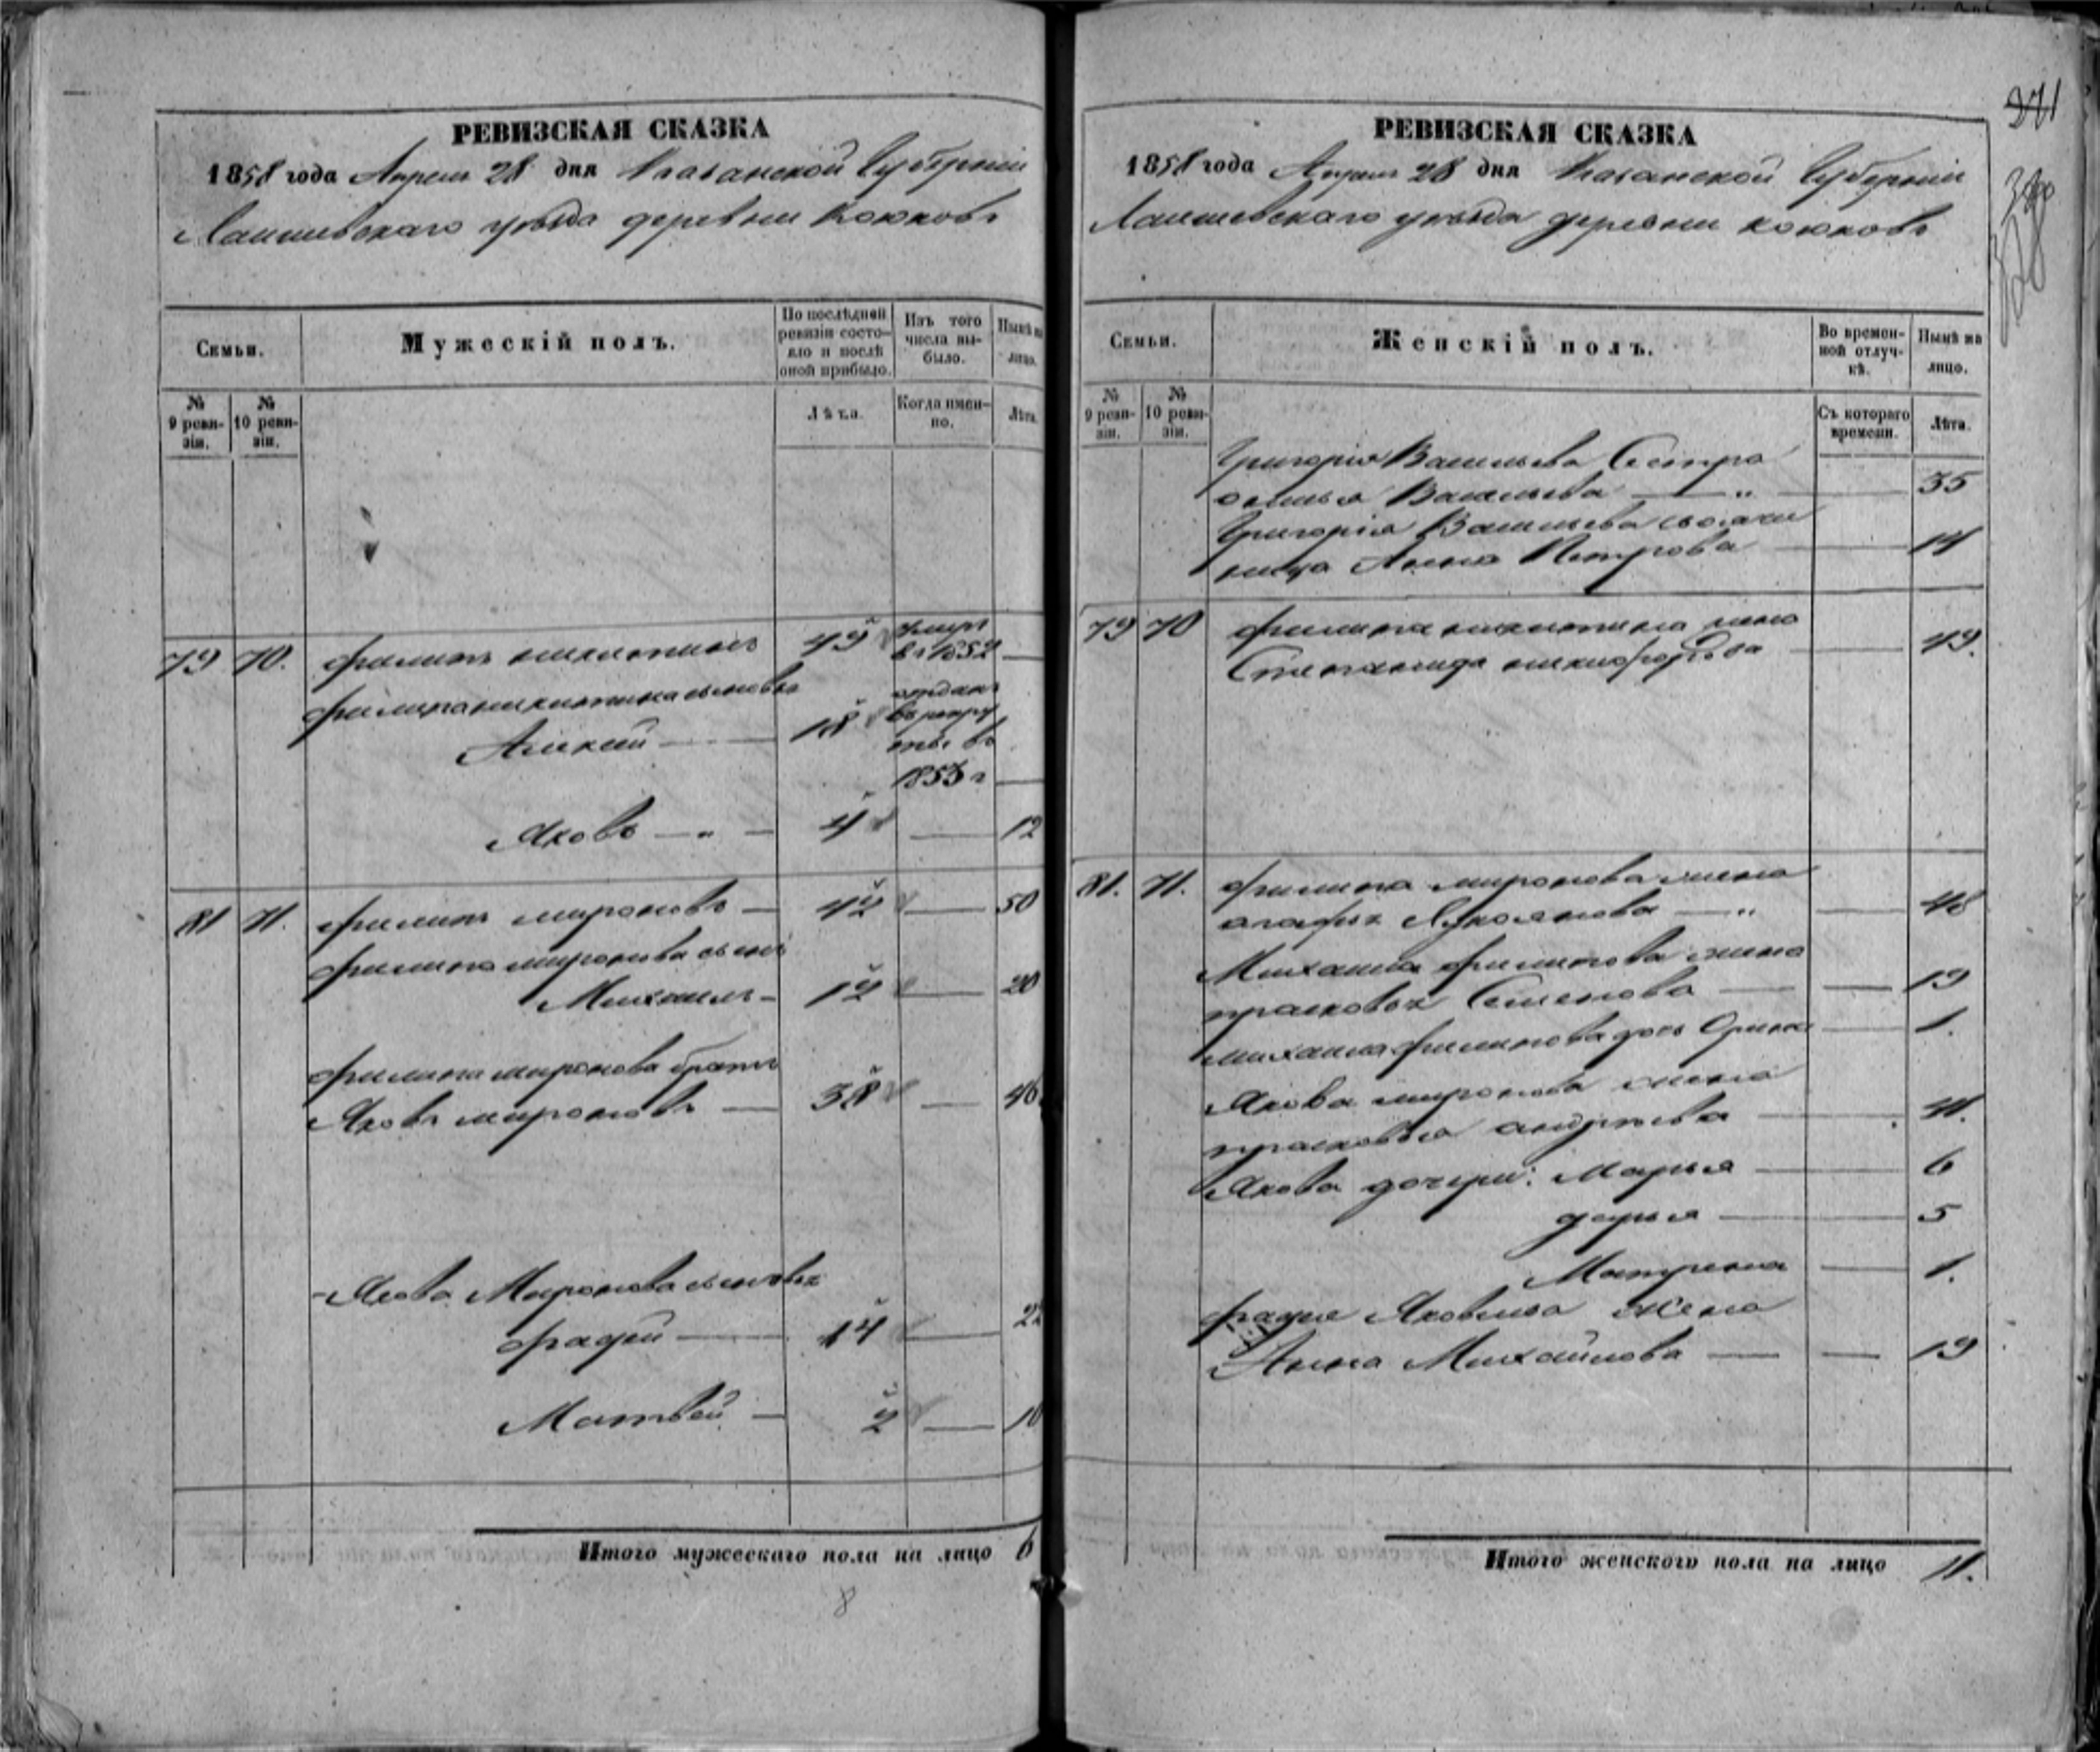 РЕВИЗСКАЯ СКАЗКА
1858 года Апреля 28 дня Казанской Губернiи
Лаишевскаго уѣзда деревни Кокковъ
Семьи.
Мужескiй полъ.
По послѣдней ревизiи состояло и послѣ оной прибыло.
Изъ того числа выбыло.
Нынѣ на лицо.
№ 9 ревизiи.
№ 10 ревизiи.
Лѣта.
Когда именно.
Лѣта.
79 70. Филипъ никитинъ 49 умеръ
въ 1852 —
Филипа никитина сыновья
Алексей — 18 отданъ
въ рекру
ты въ
1853 г —
Яковъ — „ — 4 — 12
81 71. Филипъ мироновъ — 42 — 50
Филипа миронова сынъ
Михаилъ — 12 — 20
Филипа миронова братъ
Яковъ мироновъ — 38 — 46
Якова Миронова сыновья
Фадей — 14 — 22
Матвей — 2 — 10
Итого мужескаго пола на лицо 6
8
РЕВИЗСКАЯ СКАЗКА
1858 года Апреля 28 дня Казанской Губернiи
Лаишевскаго уѣзда деревни кокковъ
Семьи.
Женскiй полъ.
Во временной отлучкѣ.
Нынѣ на лицо.
№ 9 ревизiи.
№ 10 ревизiи.
Съ котораго времени.
Лѣта.
Григорiя Васильева Сестра
Васильева — „ — 35
Григорiя Васильева
Анна Петрова — 14
79 70 Филипа никитина жена
Степанида никифорова — 49.
81. 71. Филипа миронова жена
агафья Лукоянова — „ — 48
Михаила Филипова жена
прасковья Семенова — 19
михаила Филипова дочь Орина — 1.
Якова миронова жена
прасковья андреева — 41.
Якова дочери: Марья — 6
дарья — 5
Матрена — 1.
Фадея Яковлева жена
Анна Михайлова — 19
Итого женского пола на лицо 11.